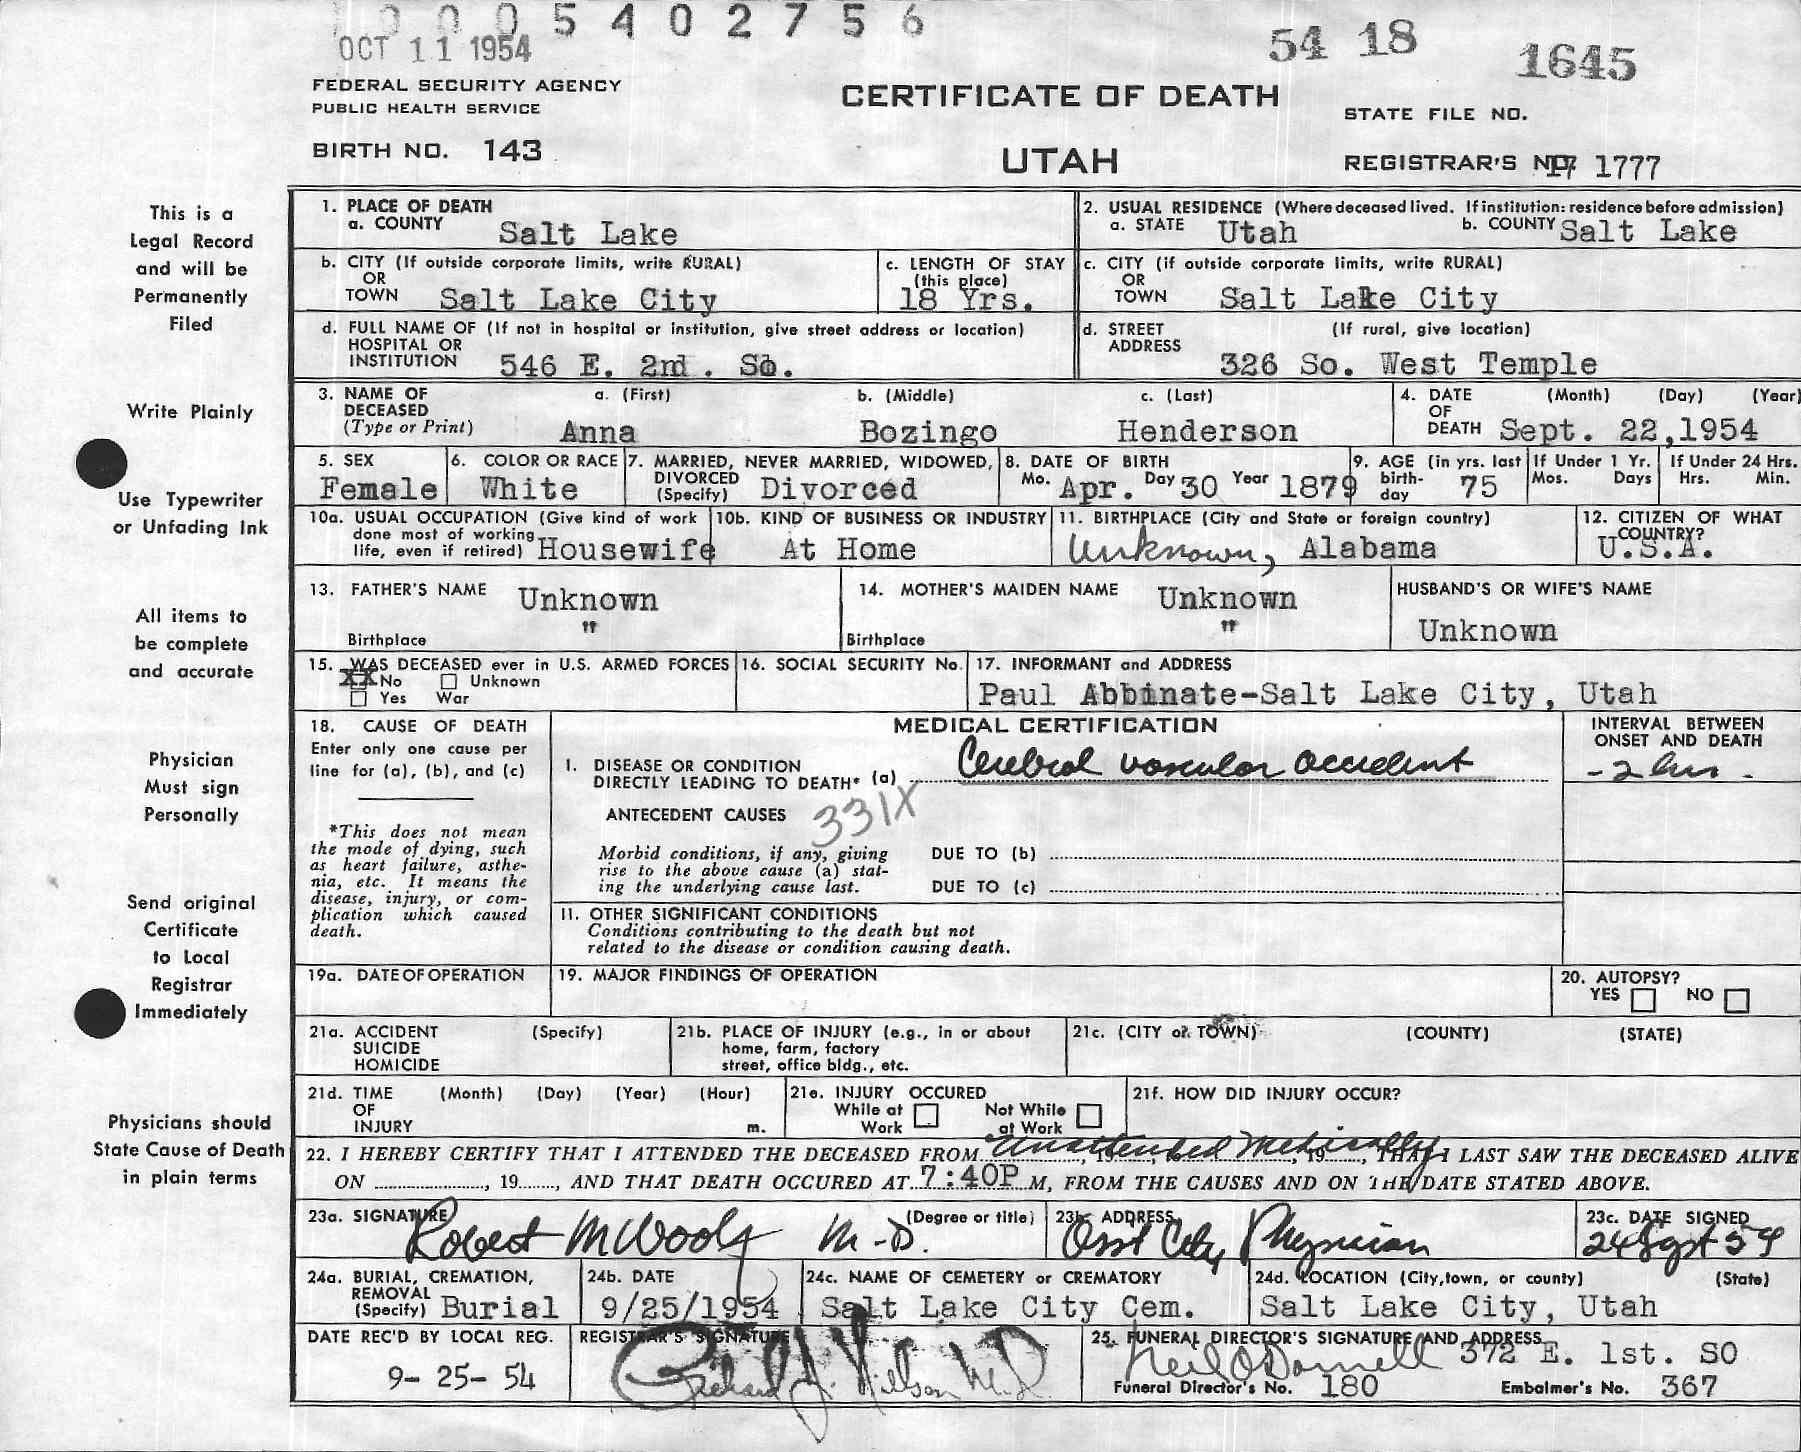 0005402756
OCT 11 1954
54 18
1645
FEDERAL SECURITY AGENCY
PUBLIC HEALTH SERVICE
CERTIFICATE OF DEATH
STATE FILE NO.
BIRTH NO. 143
UTAH
REGISTRAR'S NO. 1777
This is a
Legal Record
and will be
Permanently
Filed
Write Plainly
Use Typewriter
or Unfading Ink
All items to
be complete
and accurate
Physician
Must sign
Personally
Send original
Certificate
to Local
Registrar
Immediately
Physicians should
State Cause of Death
in plain terms
1. PLACE OF DEATH
a. COUNTY Salt Lake
2. USUAL RESIDENCE (Where deceased lived. If institution: residence before admission)
a. STATE Utah b. COUNTY Salt Lake
b. CITY (If outside corporate limits, write RURAL)
OR
TOWN Salt Lake City
c. LENGTH OF STAY
(this place)
18 Yrs.
c. CITY (if outside corporate limits, write RURAL)
OR
TOWN Salt Lake City
d. FULL NAME OF (If not in hospital or institution, give street address or location)
HOSPITAL OR
INSTITUTION 546 E. 2nd. So.
d. STREET (If rural, give location)
ADDRESS
326 So. West Temple
3. NAME OF a. (First) b. (Middle) c. (Last)
DECEASED
(Type or Print) Anna Bozingo Henderson
4. DATE (Month) (Day) (Year)
OF
DEATH Sept. 22,1954
5. SEX
Female
6. COLOR OR RACE
White
7. MARRIED, NEVER MARRIED, WIDOWED,
DIVORCED
(Specify) Divorced
8. DATE OF BIRTH
Mo. Apr. Day 30 Year 1879
9. AGE (in yrs. last
birth-
day 75
If Under 1 Yr.
Mos. Days
If Under 24 Hrs.
Hrs. Min.
10a. USUAL OCCUPATION (Give kind of work
done most of working
life, even if retired) Housewife
10b. KIND OF BUSINESS OR INDUSTRY
At Home
11. BIRTHPLACE (City and State or foreign country)
Unknown, Alabama
12. CITIZEN OF WHAT
COUNTRY?
U.S.A.
13. FATHER'S NAME Unknown
Birthplace "
14. MOTHER'S MAIDEN NAME Unknown
Birthplace "
HUSBAND'S OR WIFE'S NAME
Unknown
15. WAS DECEASED ever in U.S. ARMED FORCES
XX No Unknown
Yes War
16. SOCIAL SECURITY No.
17. INFORMANT and ADDRESS
Paul Abbinate-Salt Lake City, Utah
18. CAUSE OF DEATH
Enter only one cause per
line for (a), (b), and (c)
*This does not mean
the mode of dying, such
as heart failure, asthe-
nia, etc. It means the
disease, injury, or com-
plication which caused
death.
MEDICAL CERTIFICATION
INTERVAL BETWEEN
ONSET AND DEATH
I. DISEASE OR CONDITION
DIRECTLY LEADING TO DEATH* (a) Cerebral vascular accident
- 2 hrs.
ANTECEDENT CAUSES 331X
Morbid conditions, if any, giving
rise to the above cause (a) stat-
ing the underlying cause last.
DUE TO (b)
DUE TO (c)
II. OTHER SIGNIFICANT CONDITIONS
Conditions contributing to the death but not
related to the disease or condition causing death.
19a. DATE OF OPERATION
19. MAJOR FINDINGS OF OPERATION
20. AUTOPSY?
YES NO
21a. ACCIDENT (Specify)
SUICIDE
HOMICIDE
21b. PLACE OF INJURY (e.g., in or about
home, farm, factory
street, office bldg., etc.
21c. (CITY or TOWN) (COUNTY) (STATE)
21d. TIME (Month) (Day) (Year) (Hour)
OF
INJURY m.
21e. INJURY OCCURED
While at Work
Not While at Work
21f. HOW DID INJURY OCCUR?
22. I HEREBY CERTIFY THAT I ATTENDED THE DECEASED FROM Unattended Medically, 19, THAT I LAST SAW THE DECEASED ALIVE
ON , 19 , AND THAT DEATH OCCURED AT 7:40P M, FROM THE CAUSES AND ON THE DATE STATED ABOVE.
23a. SIGNATURE (Degree or title)
Robert M Woolf M-D.
23b. ADDRESS
Asst City Physician
23c. DATE SIGNED
24 Sept 54
24a. BURIAL, CREMATION,
REMOVAL
(Specify) Burial
24b. DATE
9/25/1954
24c. NAME OF CEMETERY or CREMATORY
Salt Lake City Cem.
24d. LOCATION (City, town, or county) (State)
Salt Lake City, Utah
DATE REC'D BY LOCAL REG.
9- 25- 54
REGISTRAR'S SIGNATURE
Richard J. Nelson M.D.
25. FUNERAL DIRECTOR'S SIGNATURE AND ADDRESS
Neil O'Donnell 372 E. 1st. SO
Funeral Director's No. 180 Embalmer's No. 367